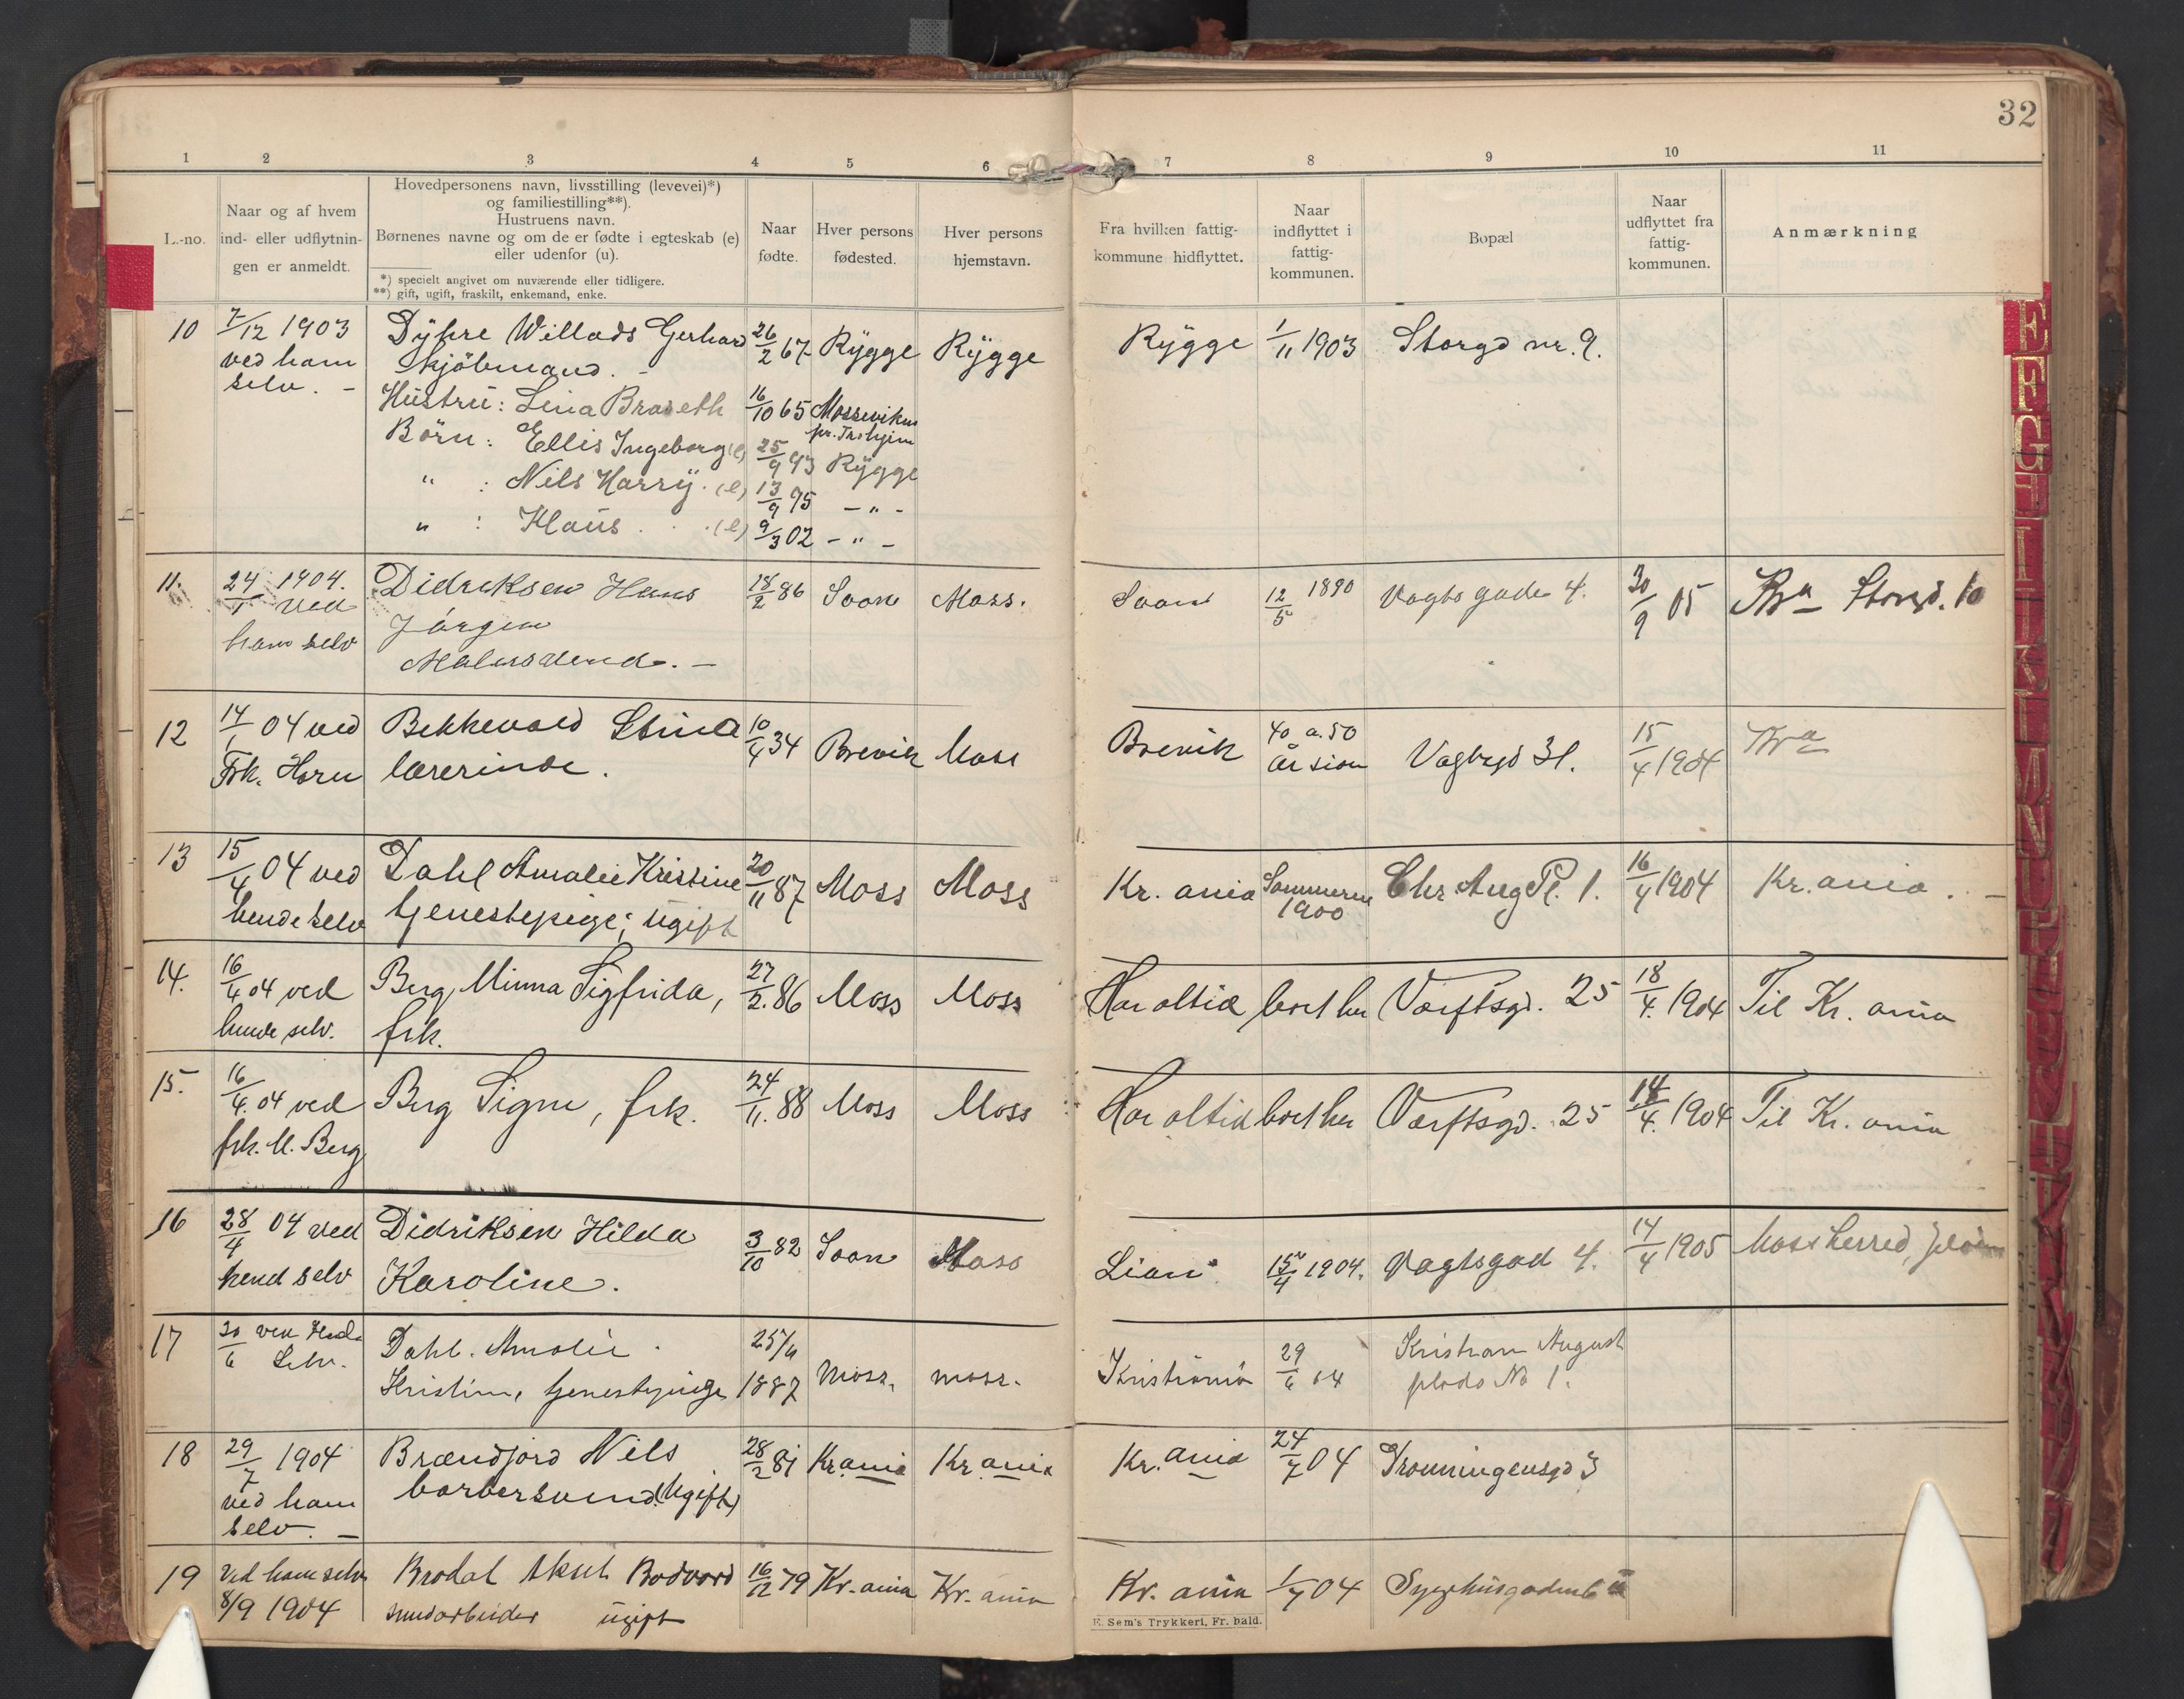 32
1 2 3 4 5 6 7 8 9 10 11
L.-no.
Naar og af hvem
ind- eller udflytnin-
gen er anmeldt.
Hovedpersonens navn, livsstilling (levevei)*)
og familiestilling**).
Hustruens navn.
Børnenes navne og om de er fødte i egteskab (e)
eller udenfor (u).
*) specielt angivet om nuværende eller tidligere.
**) gift, ugift, fraskilt, enkemand, enke.
Naar
fødte.
Hver persons
fødested.
Hver persons
hjemstavn.
Fra hvilken fattig-
kommune hidflyttet.
Naar
indflyttet i
fattig-
kommunen.
Bopæl
Naar
udflyttet fra
fattig-
kommunen.
Anmærkning
10 7/12 1903 Dyhre Willads Gerhard 26/2 67 Rygge Rygge Rygge 1/11 1903 Storgd nr. 9.
ved ham kjøbmand. -
selv. -
Hustru: Lina Braseth 16/10 65 Mosseviken
pr. Trhjim
Børn: Ellis Ingeborg (e) 25/9 93 Rygge
" : Nils Harry. (e) 13/9 95 - " -
" : Klaus . . (e) 9/3 02 - " -
11. 24/1 1904. Didriksen Hans 18/2 86 Soon Moss. Soon 12/5 1890 Vogts gade 4. 30/9 05 Kra Storgd. 10
ved Jørgen
ham selv Malersvend. -
12 14/1 04 ved Bekkevold Stina 10/4 34 Brevik Moss Brevik 40 a. 50 Vogtsgd 31. 15/4 1904 Kra
Frk. Horn lærerinde. år sion
13 15/4 04 ved Dahl Amalie Kristine 20/11 87 Moss Moss Kr. ania Sommeren Chr. Aug Pl. 1. 16/4 1904 Kr. ania. -
hende selv tjenestepige; ugift 1900
14. 16/4 04 ved Berg, Minna Sigfrida, 27/2. 86 Moss Moss Har altid boet her Værftsgd. 25 18/4. 1904 Til Kr. ania
hende selv. frk.
15. 16/4. 04 ved Berg Signe, frk. 24/11. 88 Moss Moss Har altid boet her Værftsgd. 25 18/4. 1904 Til Kr. ania
frk. M. Berg
16 28/4 04 ved Didriksen Hilda 3/10 82 Soon Moss Lian 15/4 1904. Vogtsgad 4. 14/4 1905 Moss herred,
hend selv Karoline.
17 30/6 ved Hende Dahl. Amalie 25/11 Moss. moss. Kristiania 29/6 04 Kristian August
Selv. Kristine, tjenestepige 1887 plads No 1.
18 29/7 1904 Brændjord Nils 28/2 81 Kr ania Kr ania Kr. ania 24/7 04 Dronningensgd 3
ved ham barbersvend. (Ugift)
selv. -
19 Ved ham selv Brodal Aksel Bodvard 16/12 79 Kr. ania Kr. ania Kr. ania 1/7 04 Sygehusgaden 6
8/9 1904 ugift
E. Sem's Trykkeri, Fr. hald.